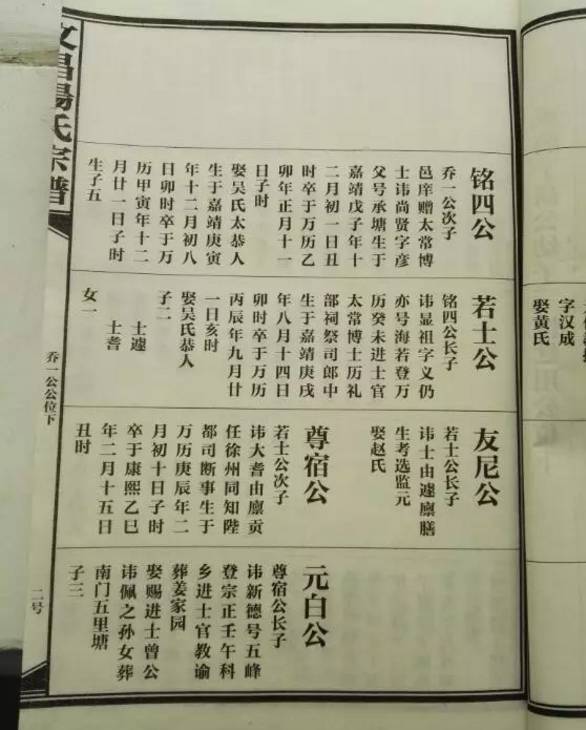 字汉成
娶黄氏
铭四公
乔一公次子
邑庠赠太常博
士讳尚贤字彦
父号承塘生于
嘉靖戊子年十
二月初一日丑
时卒于万历乙
卯年正月十一
日子时
娶吴氏太恭人
生于嘉靖庚寅
年十二月初八
日卯时卒于万
历甲寅年十二
月廿一日子时
生子五
若士公
铭四公长子
讳显祖字义仍
亦号海若登万
历癸未进士官
太常博士历礼
部祠祭司郎中
生于嘉靖庚戌
年八月十四日
卯时卒于万历
丙辰年九月廿
一日亥时
娶吴氏恭人
子二
士遽
士耆
女一
友尼公
若士公长子
讳士由遽廪膳
生考选监元
娶赵氏
尊宿公
若士公次子
讳大耆由廪贡
任徐州同知陛
都司断事生于
万历庚辰年二
月初十日子时
卒于康熙乙巳
年二月十五日
丑时
元白公
尊宿公长子
讳新德号五峰
登宗正壬午科
乡进士官教谕
葬姜家园
娶赐进士曾公
讳佩之孙女葬
南门五里塘
子三
文昌湯氏宗譜
乔一公公位下
二号